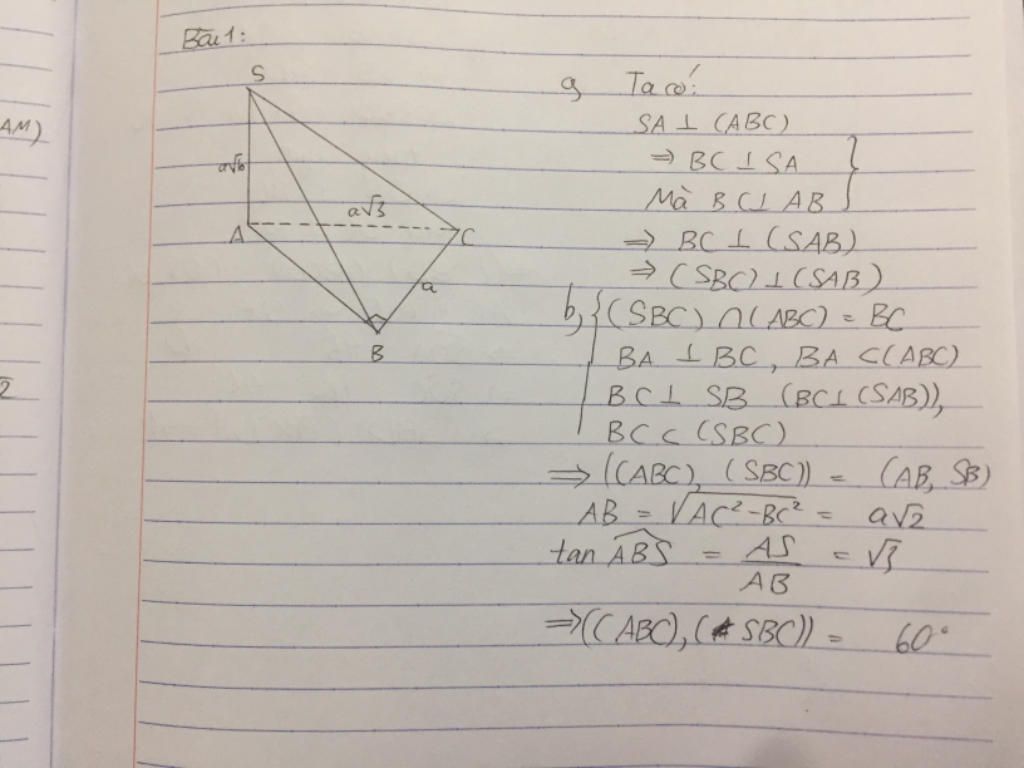 AM)
2
Bài 1:
S
a√6
a√3
A
C
a
B
a, Ta có:
SA ⊥ (ABC)
⇒ BC ⊥ SA
Mà BC ⊥ AB
⇒ BC ⊥ (SAB)
⇒ (SBC) ⊥ (SAB)
b, { (SBC) ∩ (ABC) = BC
BA ⊥ BC, BA ⊂ (ABC)
BC ⊥ SB (BC ⊥ (SAB)),
BC ⊂ (SBC)
⇒ ((ABC), (SBC)) = (AB, SB)
AB = √(AC² - BC²) = a√2
tan ABS = AS/AB = √3
⇒ ((ABC), (SBC)) = 60°